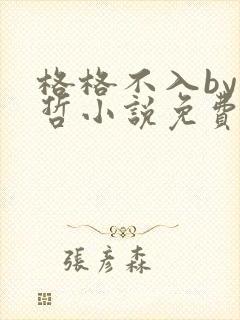 格格不入by
哲小說免費
張彥森